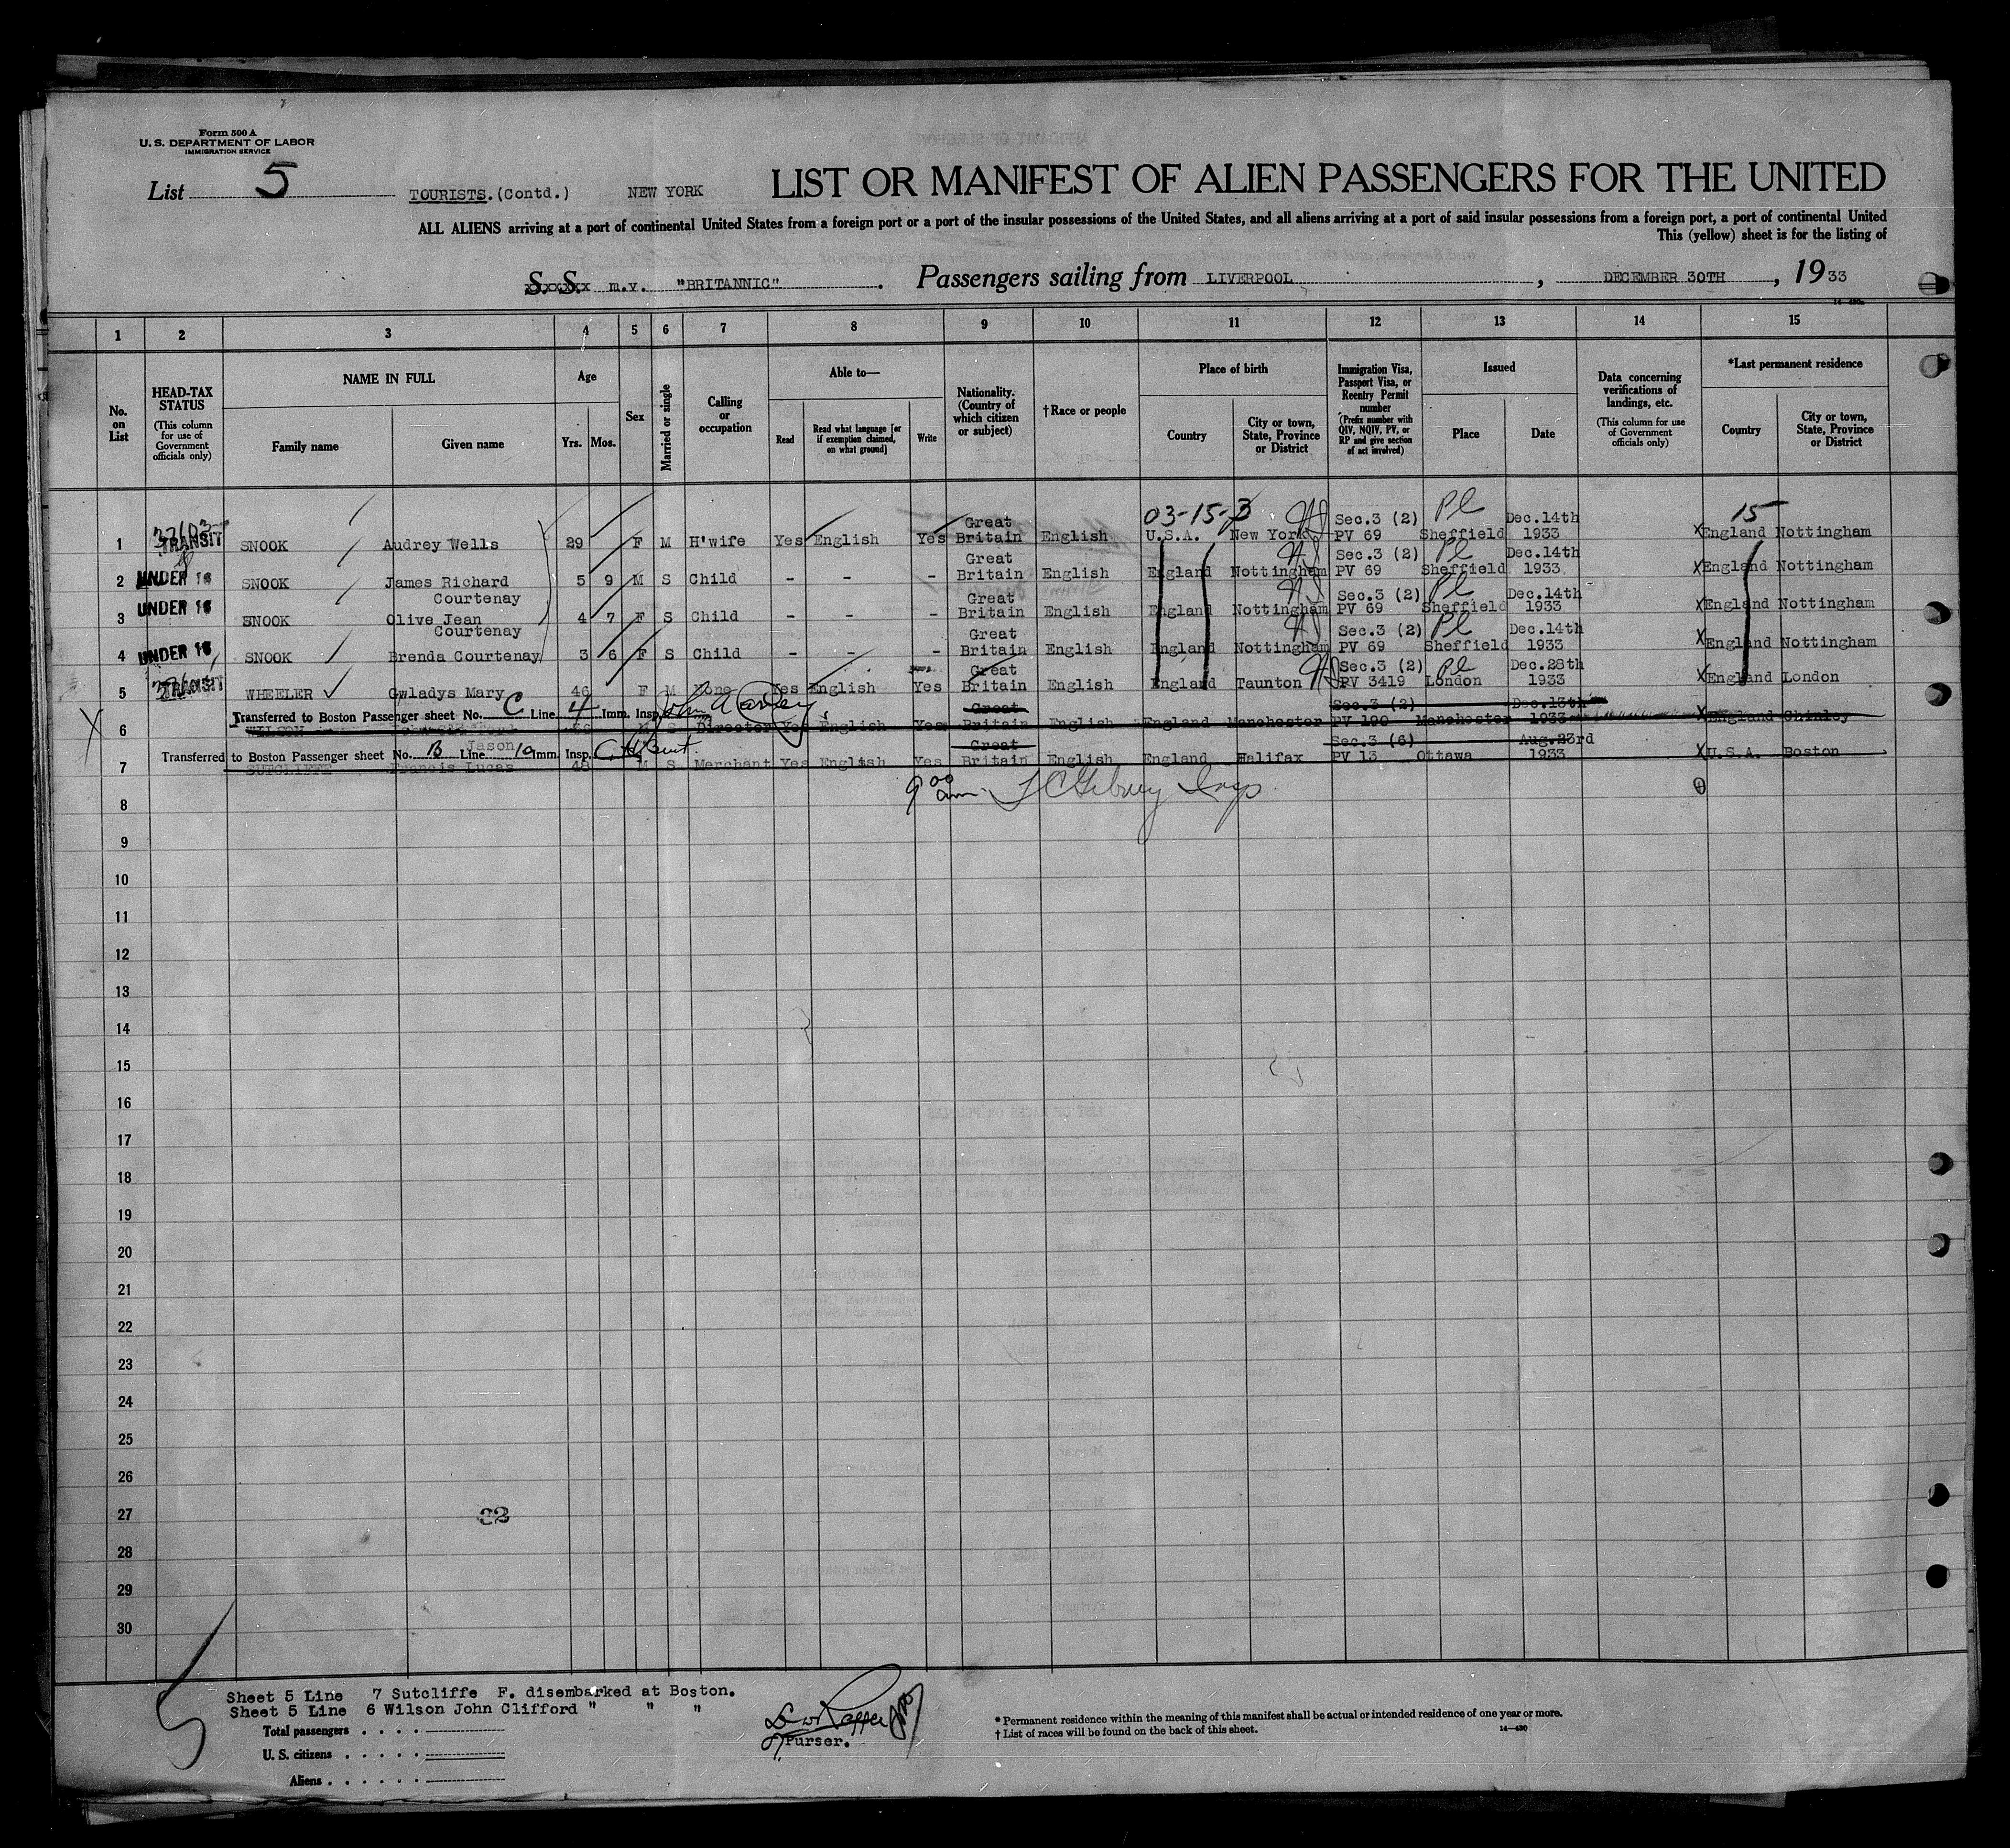 Form 500 A
U. S. DEPARTMENT OF LABOR
IMMIGRATION SERVICE
List 5 TOURISTS.(Contd.) NEW YORK LIST OR MANIFEST OF ALIEN PASSENGERS FOR THE UNITED
ALL ALIENS arriving at a port of continental United States from a foreign port or a port of the insular possessions of the United States, and all aliens arriving at a port of said insular possessions from a foreign port, a port of continental United
This (yellow) sheet is for the listing of
S. S. m.v. "BRITANNIC" . Passengers sailing from LIVERPOOL , DECEMBER 30TH , 19 33
14-430a
1 2 3 4 5 6 7 8 9 10 11 12 13 14 15
No. on List
HEAD-TAX STATUS
(This column for use of Government officials only)
NAME IN FULL
Family name Given name
Age
Yrs. Mos.
Sex
Married or single
Calling or occupation
Able to—
Read
Read what language [or if exemption claimed, on what ground]
Write
Nationality. (Country of which citizen or subject)
†Race or people
Place of birth
Country
City or town, State, Province or District
Immigration Visa, Passport Visa, or Reentry Permit number
(Prefix number with QIV, NQIV, PV, or RP and give section of act involved)
Issued
Place Date
Data concerning verifications of landings, etc.
(This column for use of Government officials only)
*Last permanent residence
Country
City or town, State, Province or District
03-15-3 Pl 15
Great Sec.3 (2) Dec.14th
1 TRANSIT SNOOK Audrey Wells 29 F M H'wife Yes English Yes Britain English U.S.A. New York PV 69 Sheffield 1933 X England Nottingham
Great Sec.3 (2) Pl Dec.14th
2 UNDER 16 SNOOK James Richard 5 9 M S Child - - - Britain English England Nottingham PV 69 Sheffield 1933 X England Nottingham
Courtenay Great Sec.3 (2) Pl Dec.14th
3 UNDER 16 SNOOK Olive Jean 4 7 F S Child - - - Britain English England Nottingham PV 69 Sheffield 1933 X England Nottingham
Courtenay Great Sec.3 (2) Pl Dec.14th
4 UNDER 16 SNOOK Brenda Courtenay 3 6 F S Child - - - Britain English England Nottingham PV 69 Sheffield 1933 X England Nottingham
Great Sec.3 (2) Pl Dec.28th
5 TRANSIT WHEELER Gwladys Mary 46 F M None Yes English Yes Britain English England Taunton PV 3419 London 1933 X England London
Transferred to Boston Passenger sheet No. C Line 4 Imm. Insp. John A Carney Great Sec.3 (2) Dec.13th
X 6 WILSON M S Director Yes English Yes Britain English England Manchester PV 190 Manchester 1933 X England Chinley
Transferred to Boston Passenger sheet No. B Line 10 Imm. Insp. Jason Great Sec.3 (6) Aug.23rd
7 SUTCLIFFE Francis Lucas 48 M S Merchant Yes English Yes Britain English England Halifax PV 13 Ottawa 1933 X U.S.A. Boston
9 00 am.
8
9
10
11
12
13
14
15
16
17
18
19
20
21
22
23
24
25
26
27
28
29
30
Sheet 5 Line 7 Sutcliffe F. disembarked at Boston.
Sheet 5 Line 6 Wilson John Clifford " " "
Total passengers . . . .
U. S. citizens . . . . .
Aliens . . . . . .
Purser.
* Permanent residence within the meaning of this manifest shall be actual or intended residence of one year or more.
† List of races will be found on the back of this sheet.
14-430